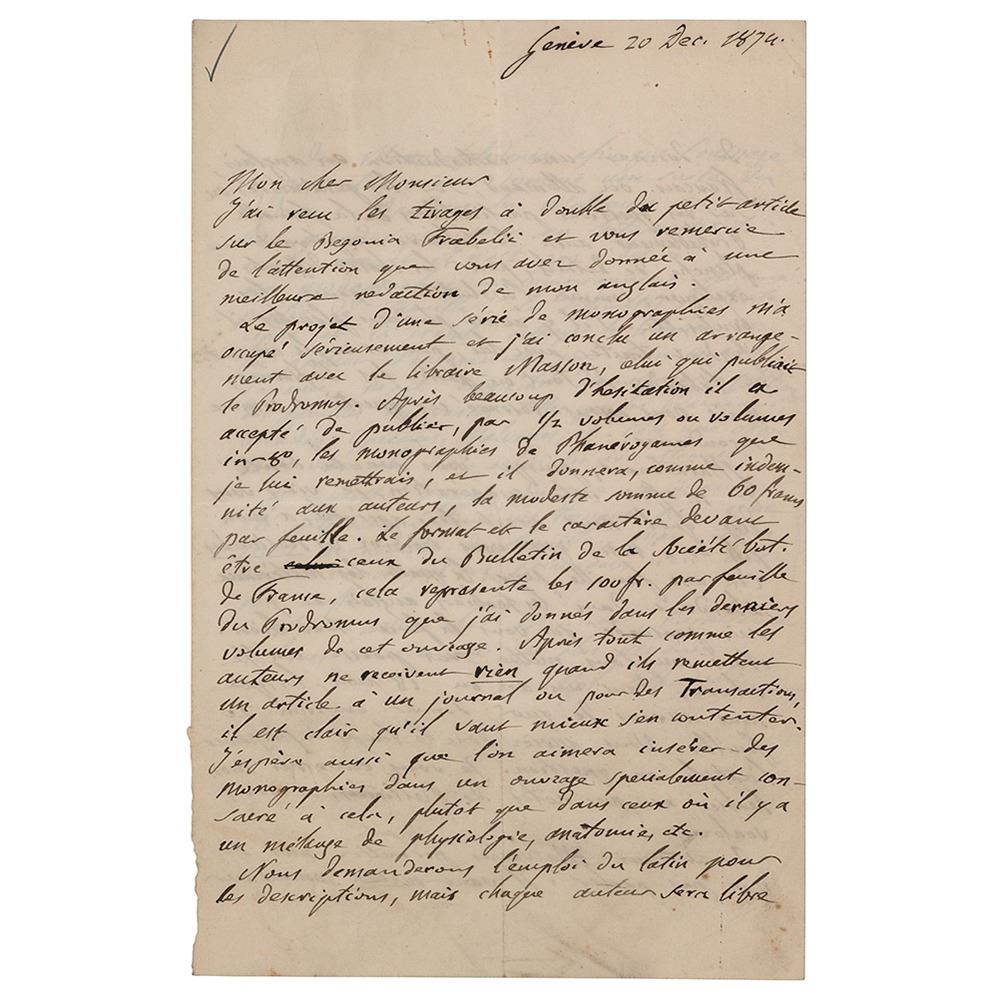 Genève 20 Dec. 1874.
Mon cher Monsieur
J'ai reçu les tirages à double du petit article
sur le Begonia Frœbelii et vous remercie
de l'attention que vous avez donnée à une
meilleure redaction de mon anglais.
Le projet d'une série de monographies m'a
occupé sérieusement et j'ai conclu un arrange-
ment avec le libraire Masson, celui qui publiait
le Prodromus. Après beaucoup d'hesitation il a
accepté de publier, par 1/2 volumes ou volumes
in-8o, les monographies de Phanérogames que
je lui remettrais, et il donnera, comme indem-
nité aux auteurs, la modeste somme de 60 francs
par feuille. Le format et le caractère devant
être ceux du Bulletin de la Société bot.
de France, cela represente les 100 fr. par feuille
du Prodromus que j'ai donnés dans les derniers
volumes de cet ouvrage. Après tout comme les
auteurs ne reçoivent rien quand ils remettent
un article à un journal ou pour des Transactions,
il est clair qu'il vaut mieux s'en contenter.
J'espère aussi que l'on aimera insérer des
monographies dans un ouvrage specialement con-
sacré à cela, plutot que dans ceux où il y a
un mélange de physiologie, anatomie, etc.
Nous demanderons l'emploi du latin pour
les descriptions, mais chaque auteur sera libre